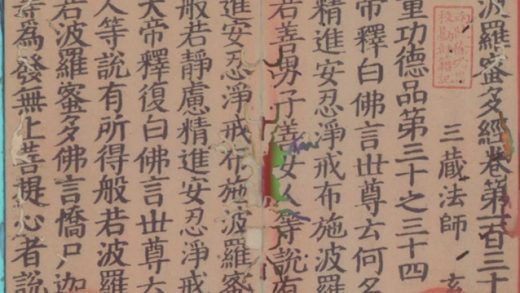 波羅蜜多經卷第一百三十
三藏法師 玄
量功德品第三十之三十四
帝釋白佛言世尊云何名
精進安忍淨戒布施波羅
若善男子善女人等說有
進安忍淨戒布施波羅蜜
般若靜慮精進安忍淨戒
大帝釋復白佛言世尊云
人等說有所得般若波羅
若波羅蜜多佛言憍尸迦
等為發無上菩提心者說